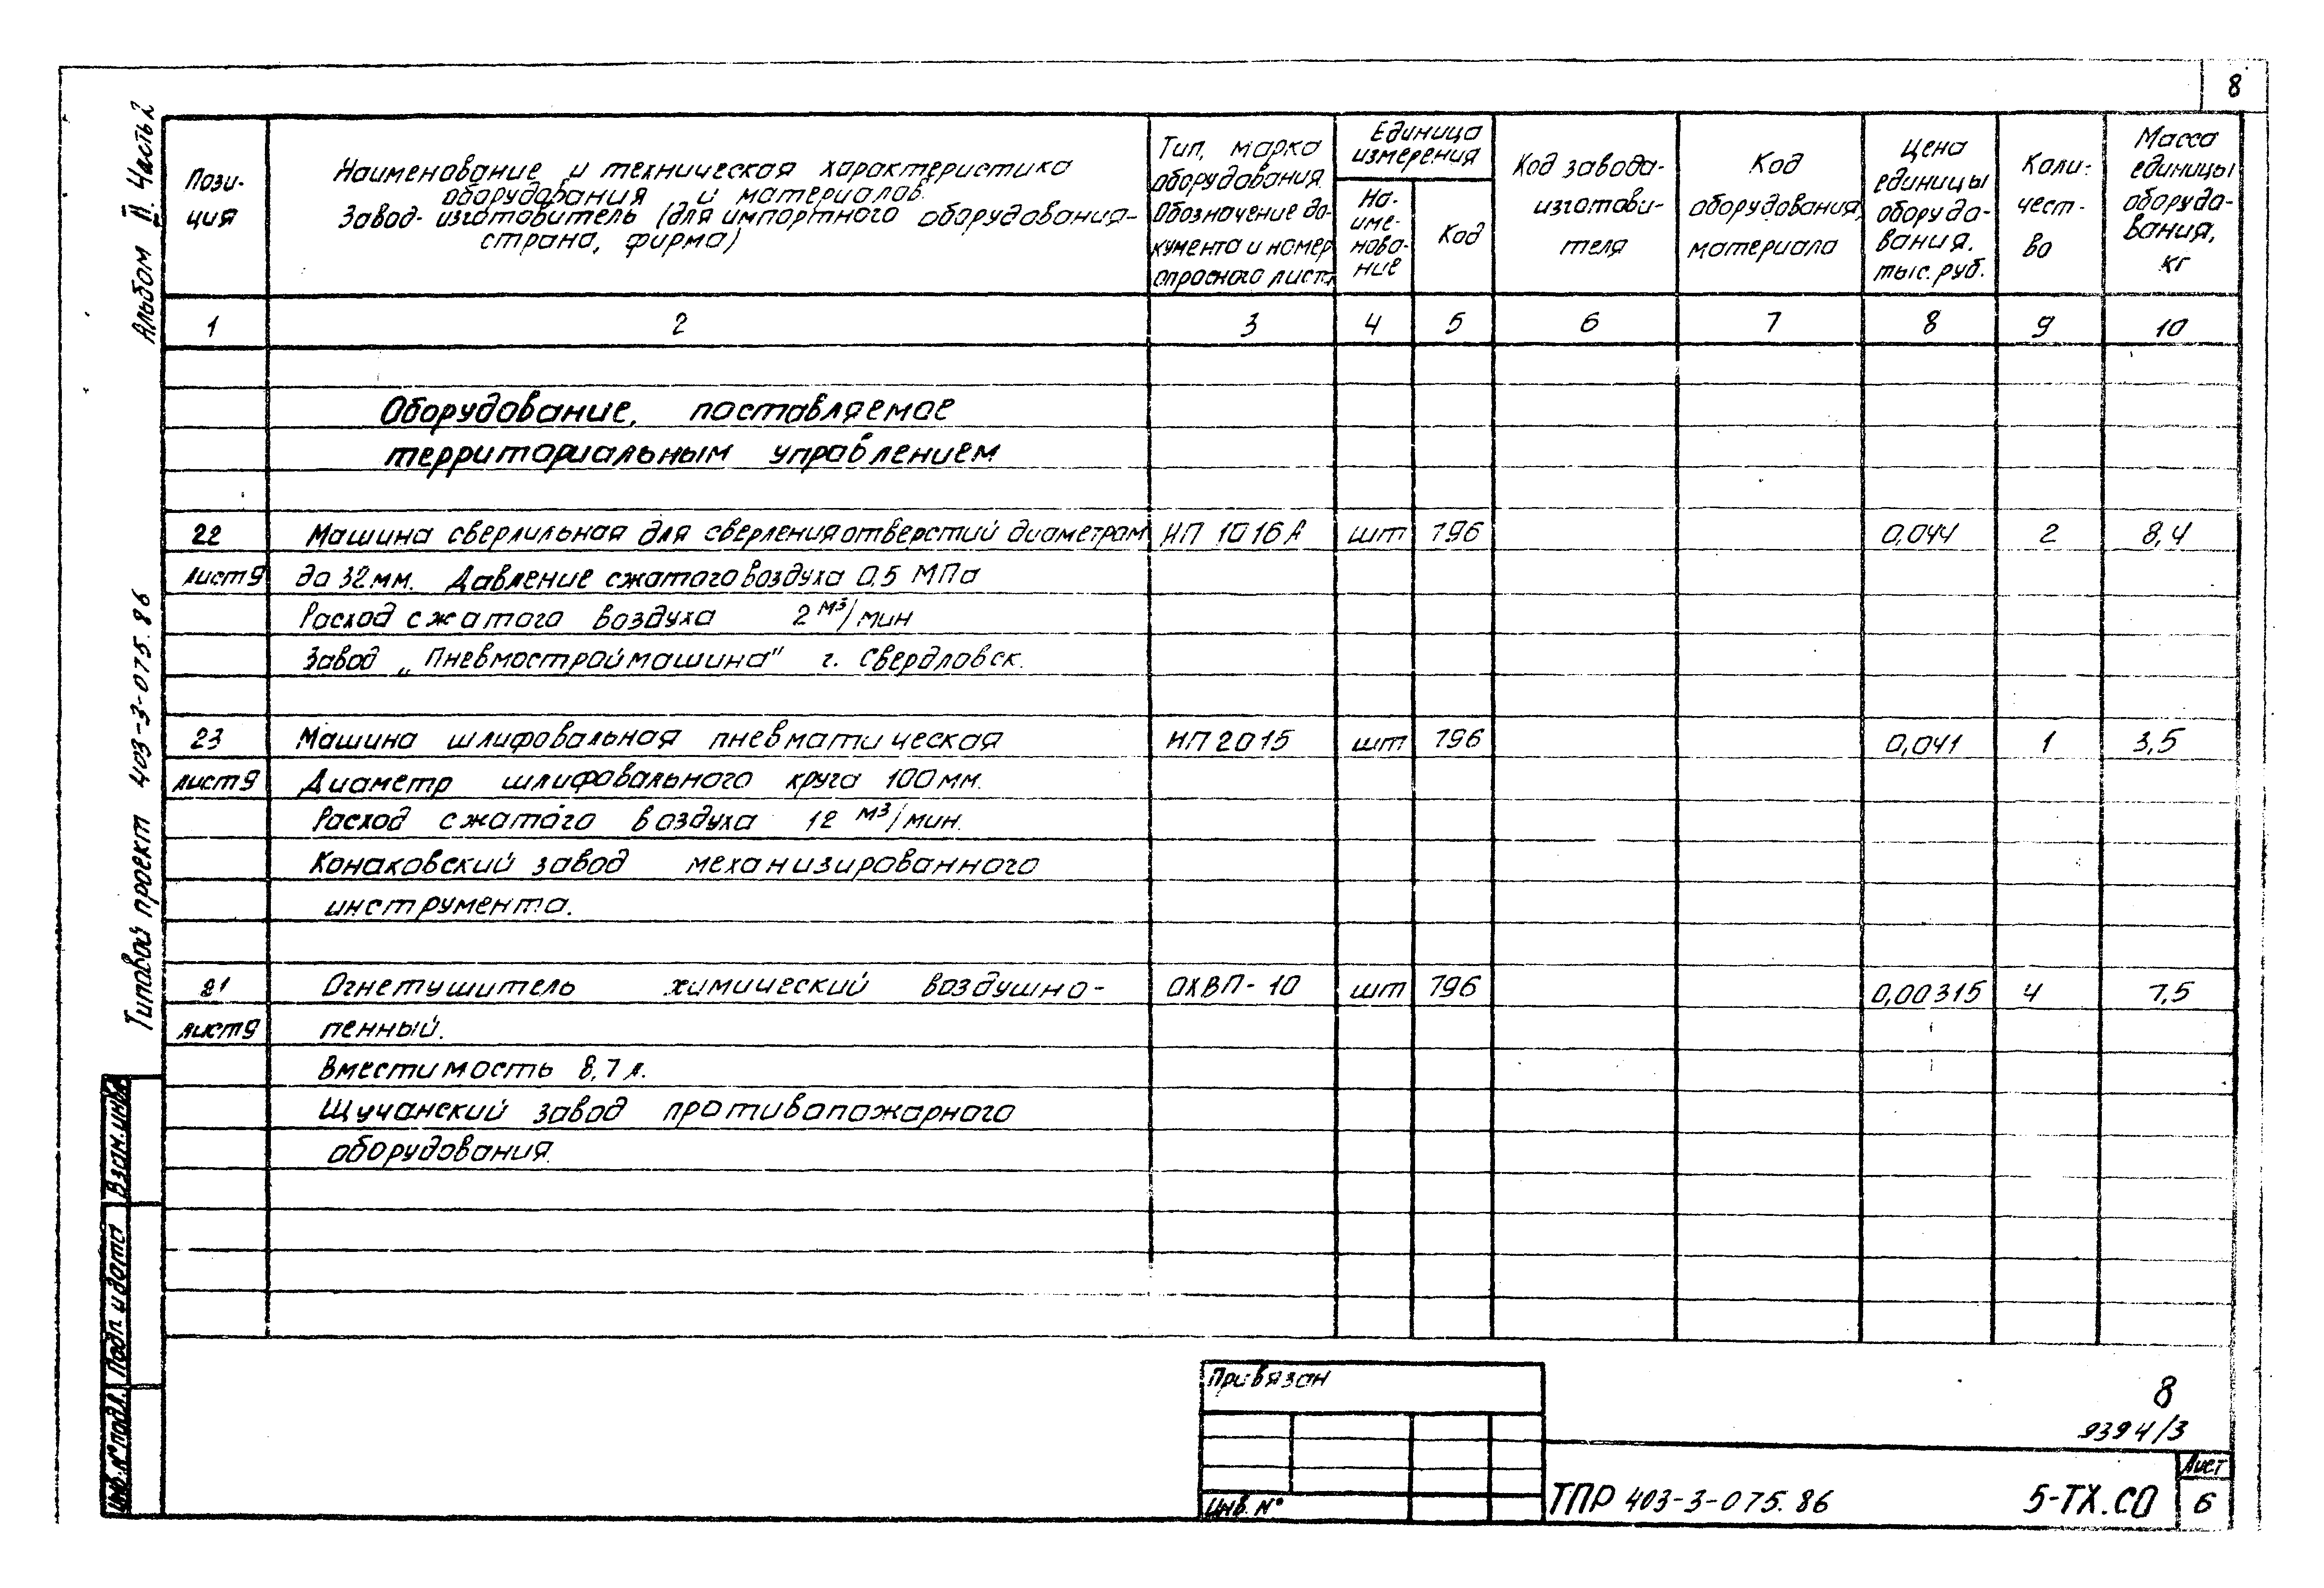 8
Альбом II. Часть 2
Типовой проект 403-3-075.86
Пози-
ция
Наименование и техническая характеристика
оборудования и материалов.
Завод-изготовитель (для импортного оборудования-
страна, фирма)
Тип, марка
оборудования.
Обозначение до-
кумента и номер
опросного листа
Единица
измерения
На-
име-
нова-
ние
Код
Код завода-
изготови-
теля
Код
оборудования,
материала
Цена
единицы
оборудо-
вания,
тыс. руб.
Коли-
чест-
во
Масса
единицы
оборудо-
вания,
кг
1 2 3 4 5 6 7 8 9 10
Оборудование, поставляемое
территориальным управлением
22 Машина сверлильная для сверления отверстий диаметром ИП 1016А шт 796 0,044 2 8,4
лист 9 до 32мм. Давление сжатого воздуха 0,5 МПа
Расход сжатого воздуха 2 м3/мин
Завод „Пневмостроймашина" г. Свердловск.
23 Машина шлифовальная пневматическая ИП 2015 шт 796 0,041 1 3,5
лист 9 Диаметр шлифовального круга 100мм.
Расход сжатого воздуха 12 м3/мин.
Конаковский завод механизированного
инструмента.
21 Огнетушитель химический воздушно- ОХВП-10 шт 796 0,00315 4 7,5
лист 9 пенный.
Вместимость 8,7 л.
Щучанский завод противопожарного
оборудования.
Взам.инв.
Подп. и дата
Инв.№ подл.
Привязан
Инв. №
8
9394/3
ТПР 403-3-075.86 5-ТХ.СО
Лист
6